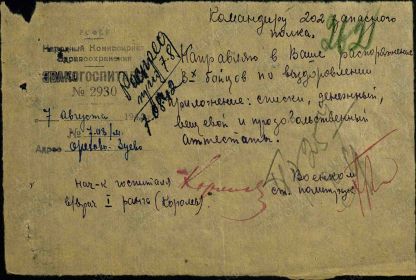 РСФСР
Народный Комиссариат
Здравоохранения
ЭВАКОГОСПИТ
№ 2930
7 Августа
№ 7.08/м.
Адрес Орехово-Зуево
Командиру 202 запасного
полка.
Направляю в Ваше распоряжение
бойцов по выздоровлении
Приложение: списки, денежный,
вещевой и продовольственный
аттестаты.
нач-к госпиталя
в/врач I ранга (Королев)
Военком
ст. политрук